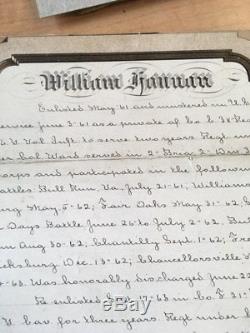 William Hannan
Enlisted May 61 and mustered in U.S.
service June 3-61 as a private of Co. C 38 Regt
Vol Inft to serve two years Regt under
Col Ward served in 2 Brig 2
Corps and participated in the following
Battles Bull Run, Va. July 21-61, Williams
burg May 5-62; Fair Oaks May 31-62;
Days Battle June 26 to July 2-62;
Run Aug 30-62, Chantilly Sept. 1-62; Fr
icksburg Dec. 13-62; Chancellorsville
Was honorably discharged June 22
Re enlisted 17-63 in co. F 21
Cav. for three years Regt under
ebay